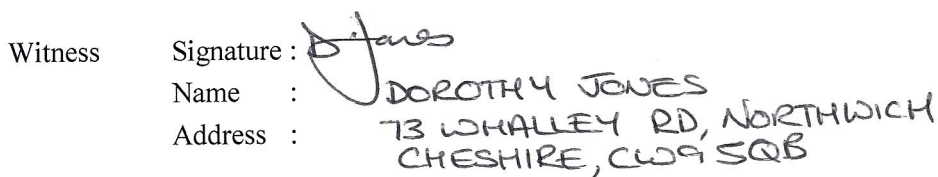 Witness Signature : D. Jones
Name : DOROTHY JONES
Address : 73 WHALLEY RD, NORTHWICH
CHESHIRE, CW9 5QB